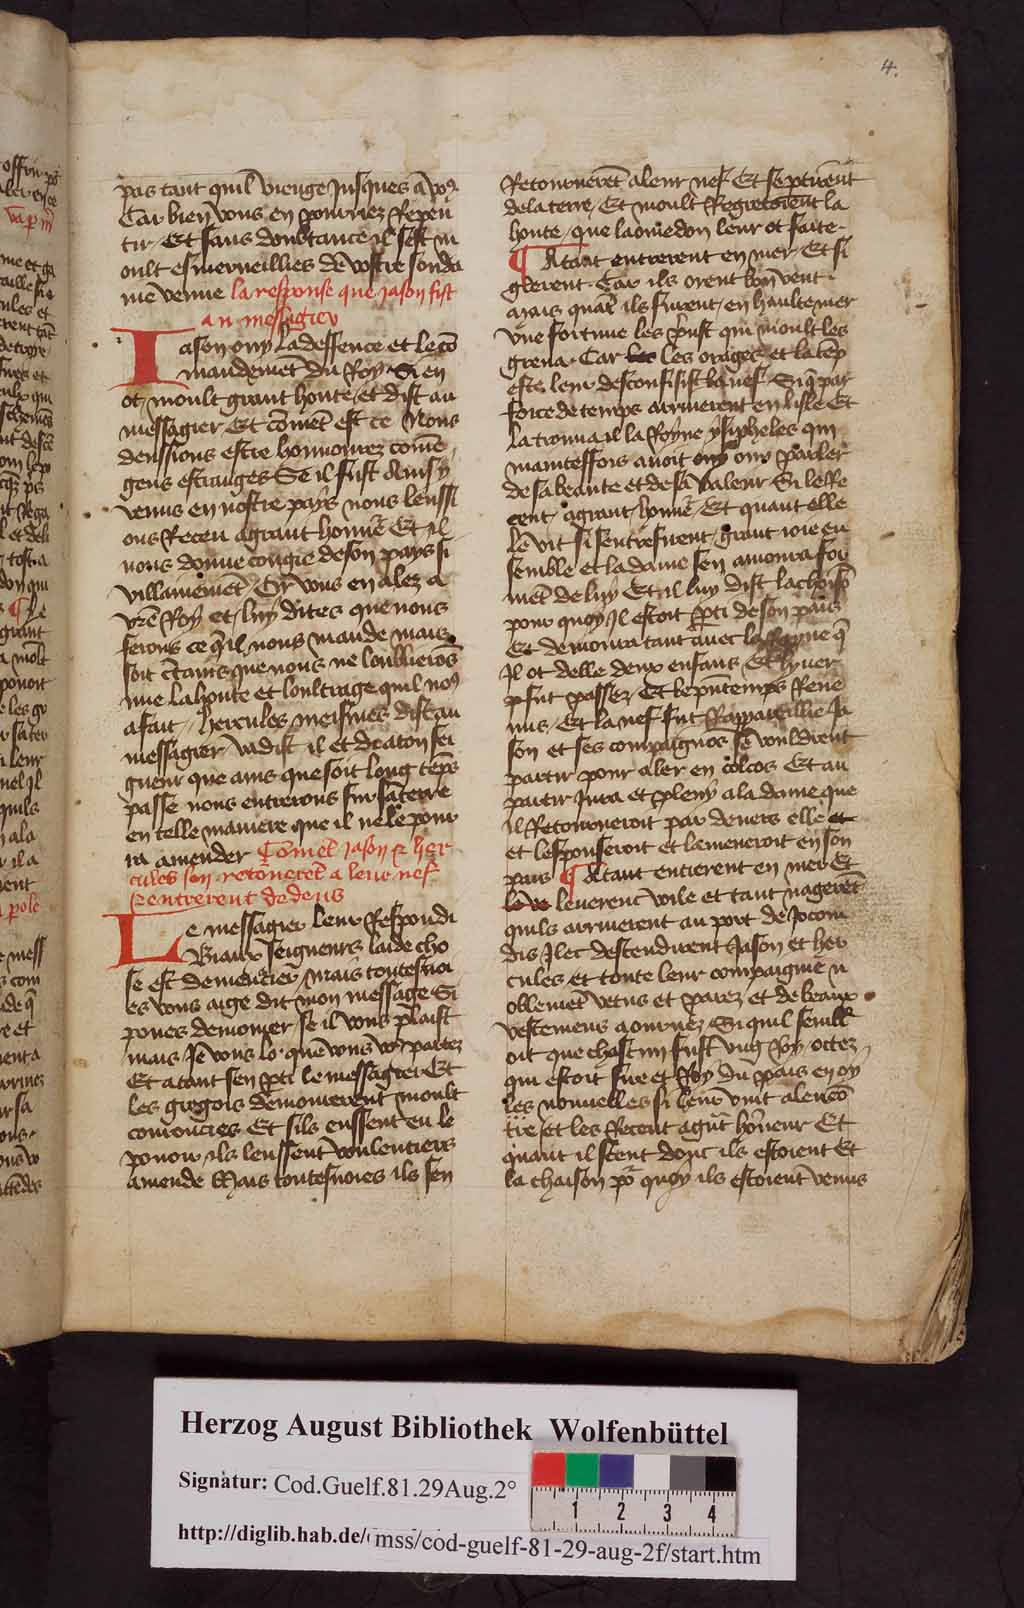 4.
pas tant quil viengne jusques a vos
Car bien vous en pourriez Repen
tir / Et sans doubtance il sest m
oult esmerveillies de vostre souda
ine venue la response que jason fist
au messagier
Iason ouy la deffence et le cō
mandemēt du Roy Si en
ot moult grant honte et dist au
messagier Et cōmēt est ce Nous
deussions estre honnourez come
gens estranges Se il fust Ainsy
venus en nostre pays nous leussi
ons Receu a grant honneʳ Et il
nous donne congie de son pays si
villainemēt / Or vous en alez a
vrē Roy et luy dites que nous
ferons ce qͥl nous mande mais
soit c̄tains que nous ne loublierōs
mie La honte et loultrage quil noꝰ
a fait / hercules meismes dist au
messagier va dist il et di a ton sei
gneur que ains que soit long tēps
passe nous entrerons sur sa terre
en telle maniere que il ne le pour
ra amender Cōmēt jason & her
cules sen retōnerēt a leur nef
& entrerent dedens
Le messagier leur Respondi
Biaux seigneurs laide cho
se est de menacier / mais toutesuoi
es vous ai ge dit mon message Si
poues demourer se il vous plaist
mais Je vous lo que vous vo⁹ partez
Et atant sen p̄ti le messagier Et
les gregois demourerent moult
couroucies Et sils eussent eu le
pouoir ils leussent voulentiers
amende Mais toutesuoies ils sen
Retournerēt a leur nef Et se ptirent
de la terre / Et moult Regretoient la
honte / que laomedon leur ot faite
¶ Atant entrerent en mer / Et si
glerent Car ils orent bon vent
Mais quāt ils furent / en haulte mer
Vne fortune les p̄nst qui moult les
greua Car les les orages et la tēp
este leur desconfisist la nef Si q̄ par
force de temps arriuerent en lisle Et
La trouua il la Royne ysipheles qui
maintesfois auoit ouy ouy parler
de sa beaute et de sa valeur Si le Re
ceut a grant honneʳ Et quant elle
le vit si sentrefirent grant ioie en
semble et la dame sen amoura for
mēt de luy Et il luy dist lachoisō
pour quoy Il estoit p̄ti de son pais
Et demoura tant auec la Royne q̄
Il ot delle deux enfans Et lyuer
fut passez / Et le p̄ntemps Reue
nus / Et la nef fut Rappareillie Ja
son et ses compagnos se vouldrent
partir pour aler en colcos Et au
partir Jura et pleuy a la dame que
il Retourneroit par deuers elle et
et lespouseroit et lameneroit en son
pais ¶ Atant entrerent en mer Et
le ve leuerent voile et tant nagerēt
quils arriuerent au port de Jocon
dis Ilec descendirent Jason et her
cules et toute leur compaignie n
oblemēt vetus et parez et de beaux
vestemens aournez Si quil sembl
oit que chascun fust vng Roy ottez
qui estoit sire et Roy du pais en oy
les nouuelles si leur vint a lencō
tre / et les Receut a gr̄t hōneur Et
quant il scent donc ils estoient Et
la choison po͛ quoy ils estoient venus
Herzog August Bibliothek Wolfenbüttel
Signatur: Cod.Guelf.81.29Aug.2°
1 2 3 4
http://diglib.hab.de/mss/cod-guelf-81-29-aug-2f/start.htm